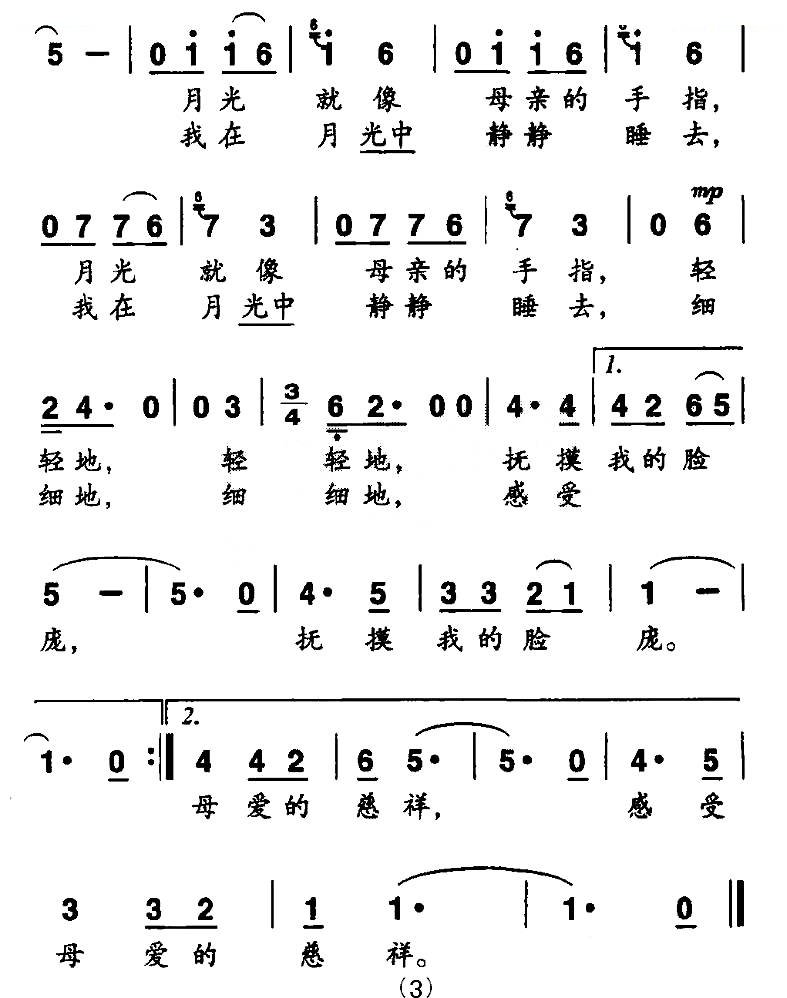 5 – | 0 i i 6 | 6 i 6 | 0 i i 6 | 6 i 6 |
月光 就像 母亲的 手指，
我在 月光中 静静 睡去，
mp
0 7 7 6 | 6 7 3 | 0 7 7 6 | 6 7 3 | 0 6 |
月光 就像 母亲的 手指， 轻
我在 月光中 静静 睡去， 细
1.
2 4· 0 | 0 3 | 3/4 6 2· 0 0 | 4· 4 | 4 2 6 5 |
轻地， 轻 轻地， 抚摸 我的脸
细地， 细 细地， 感受
5 – | 5· 0 | 4· 5 | 3 3 2 1 | 1 – |
庞， 抚摸 我的脸 庞。
2.
1· 0 :| 4 4 2 | 6 5· | 5· 0 | 4· 5 |
母爱的 慈祥， 感受
3 3 2 | 1 1· | 1· 0 ||
母爱的 慈祥。
（3）